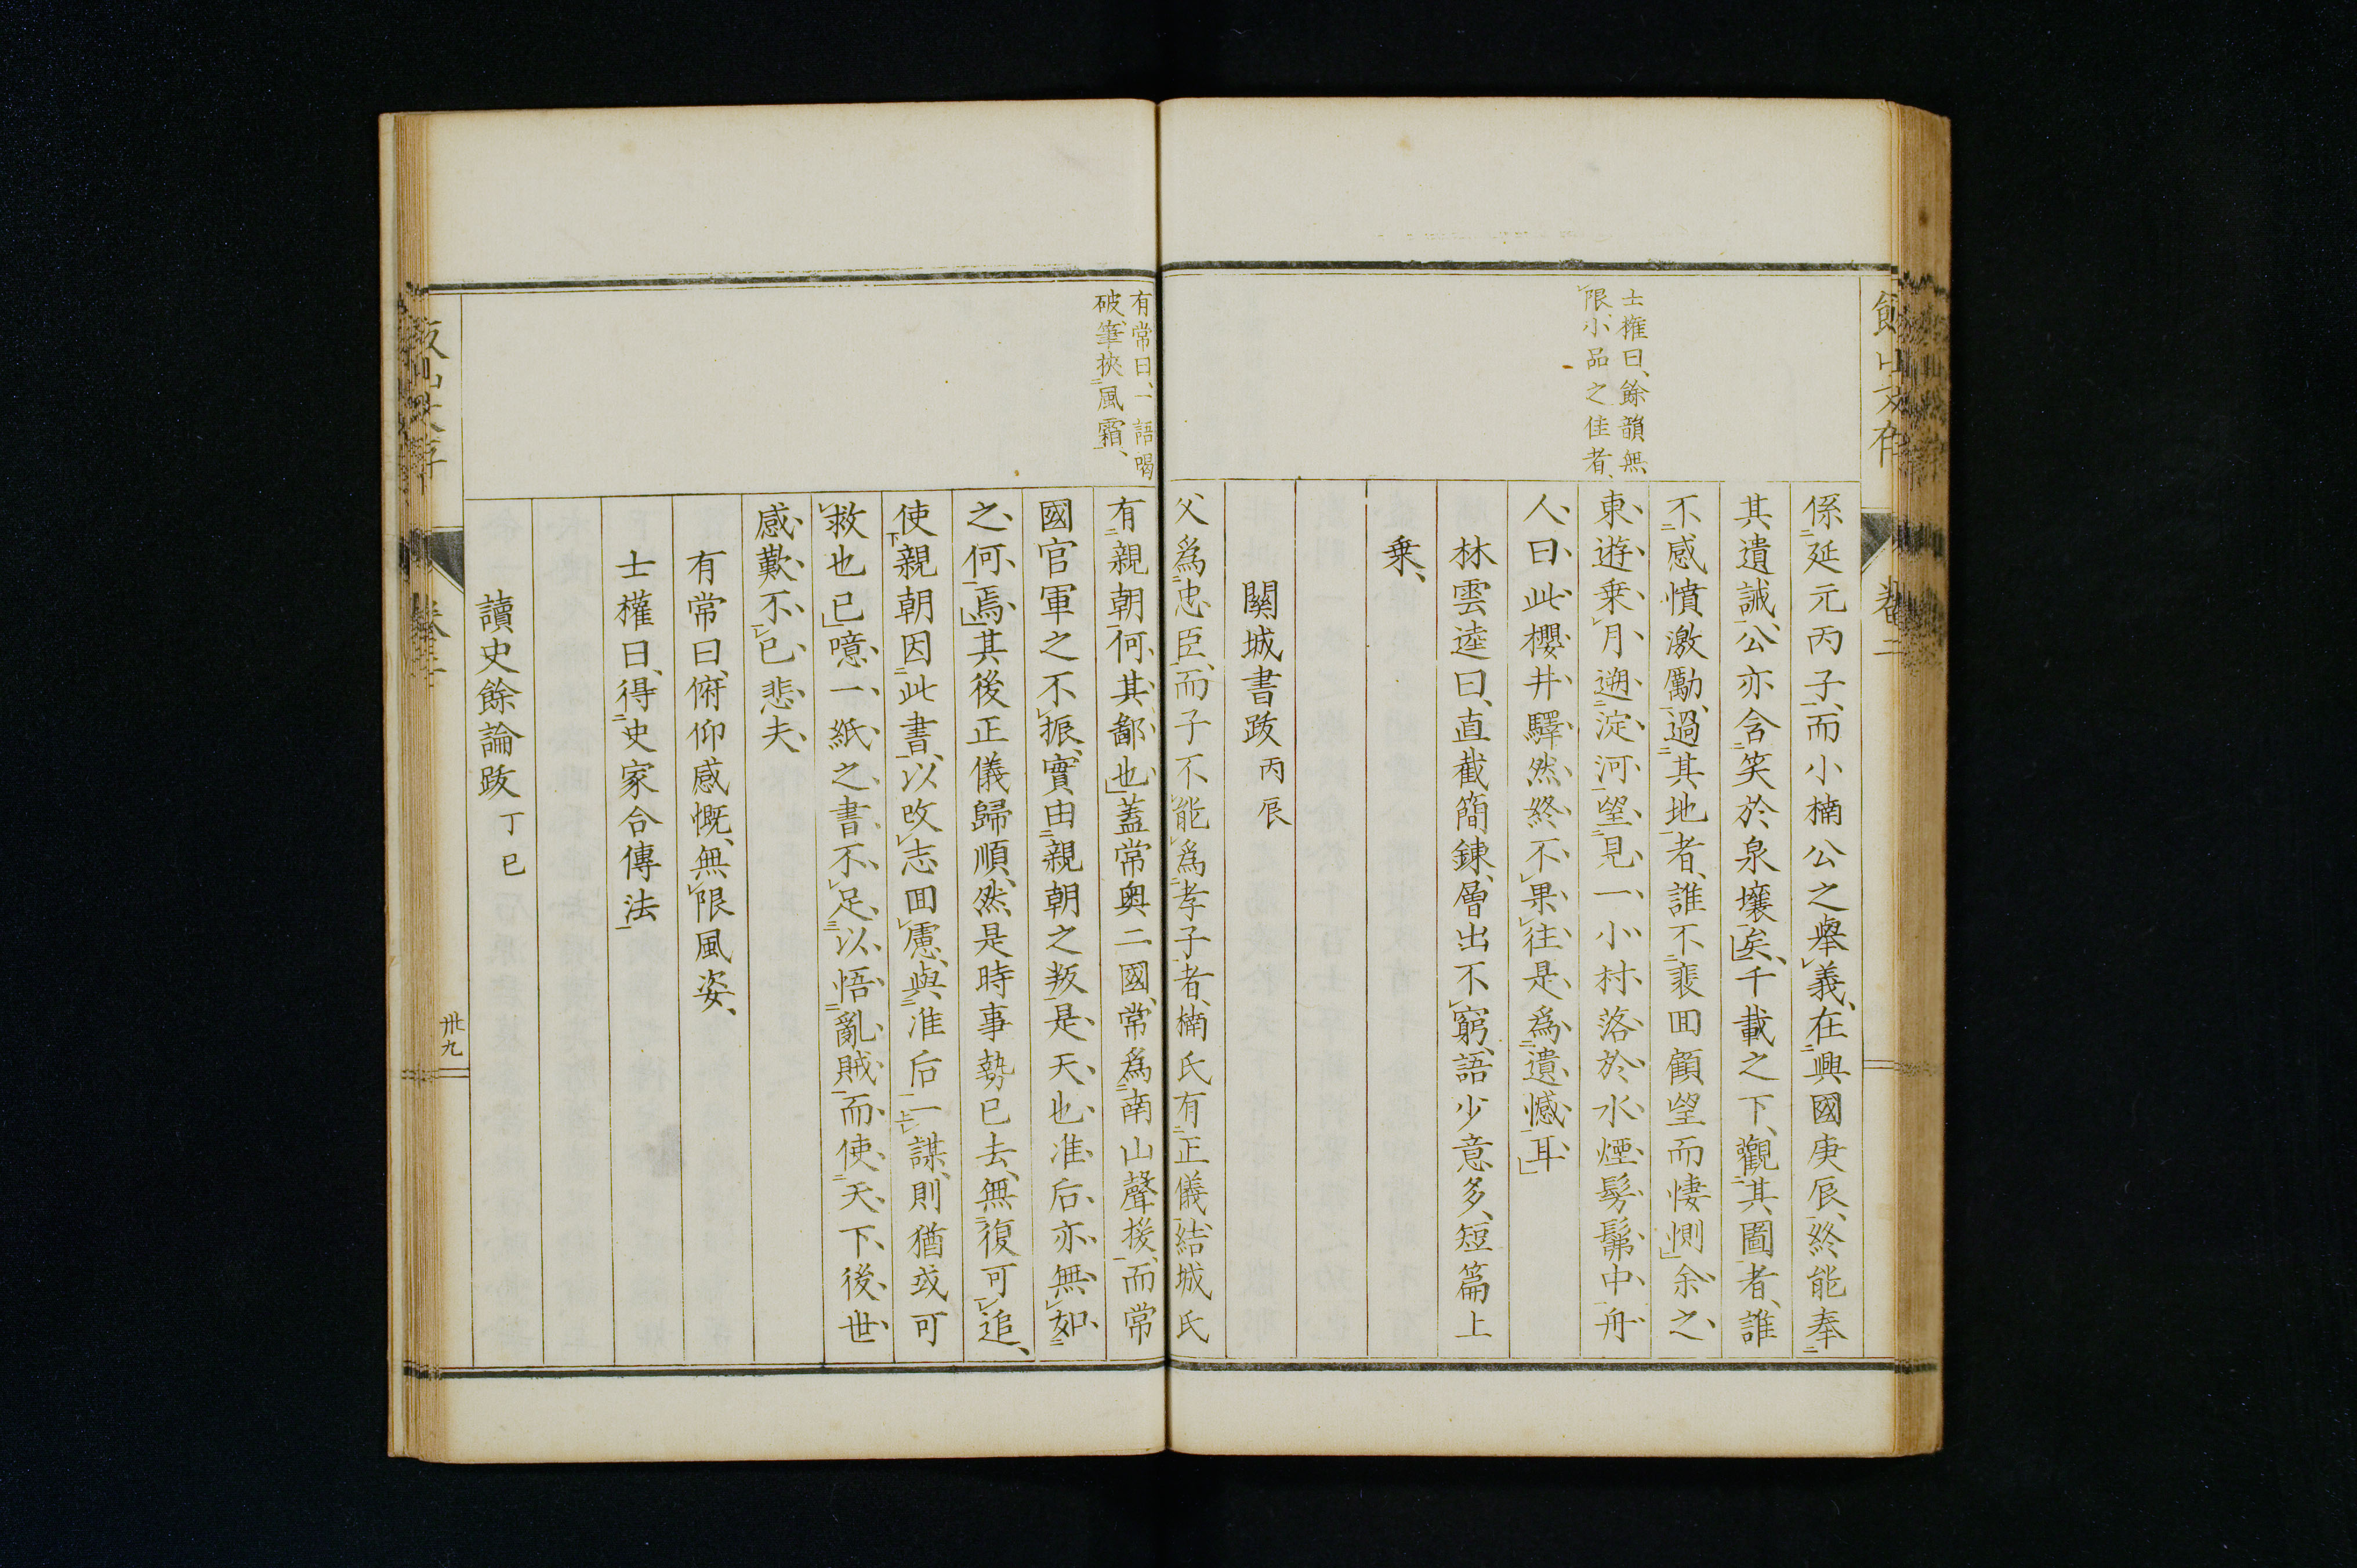 士權曰、餘韻無
限、小品之佳者、
係延元丙子、而小楠公之舉義、在興國庚辰、終能奉
其遺誡、公亦含笑於泉壤矣、千載之下、觀其圖者、誰
不感憤激勵、過其地者、誰不裴回顧望而悽惻、余之
東遊乗月遡淀河、望見一小村落於水煙髣髴中、舟
人曰、此櫻井驛、然終不果往、是爲遺憾耳
林雲逵曰、直截簡錬、層出不窮、語少意多、短篇上
乗、
關城書跋 丙辰
父爲忠臣、而子不能爲孝子者、楠氏有正儀、結城氏
有常曰、一語喝
破、筆挾風霜、
有親朝、何其鄙也、蓋常奥二國、常爲南山聲援、而常
國官軍之不振、實由親朝之叛、是天也、准后亦無如
之何焉、其後正儀歸順、然是時事勢已去、無復可追、
使親朝因此書、以改志回慮、與准后一謀、則猶或可
救也已、噫、一紙之書、不足以悟亂賊、而使天下後世
感歎不已、悲夫、
有常曰、俯仰感慨、無限風姿、
士權曰、得史家合傳法
讀史餘論跋 丁巳
卷二
卅九